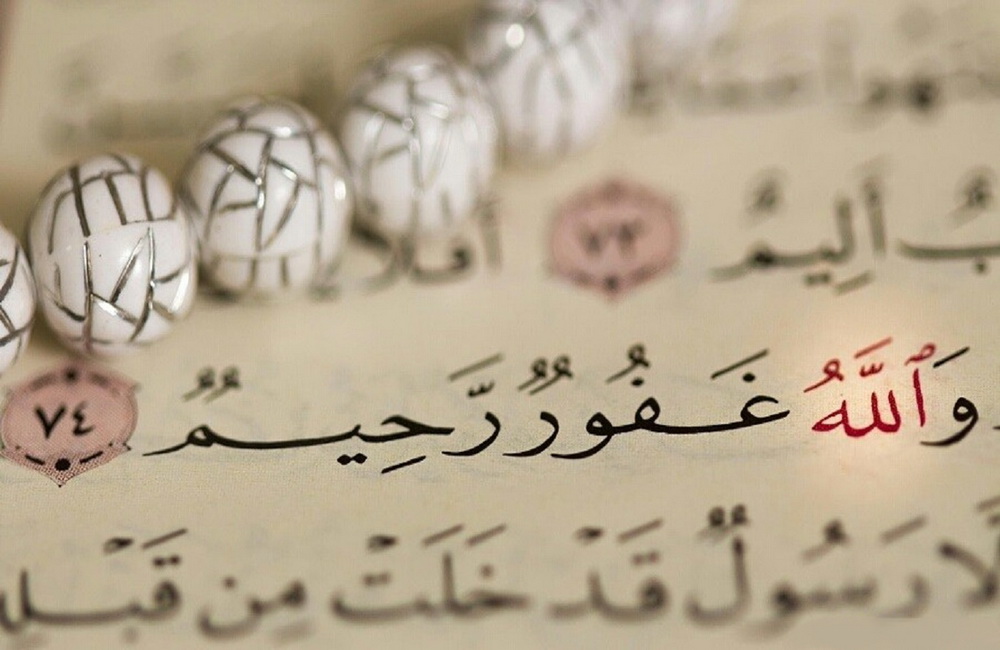 بٌ أَلِيمٌ ٧٣ أفلا
وَٱللَّهُ غَفُورٌ رَّحِيمٌ ٧٤
لَّا رَسُولٌ قَدْ خَلَتْ مِن قَبْلِ